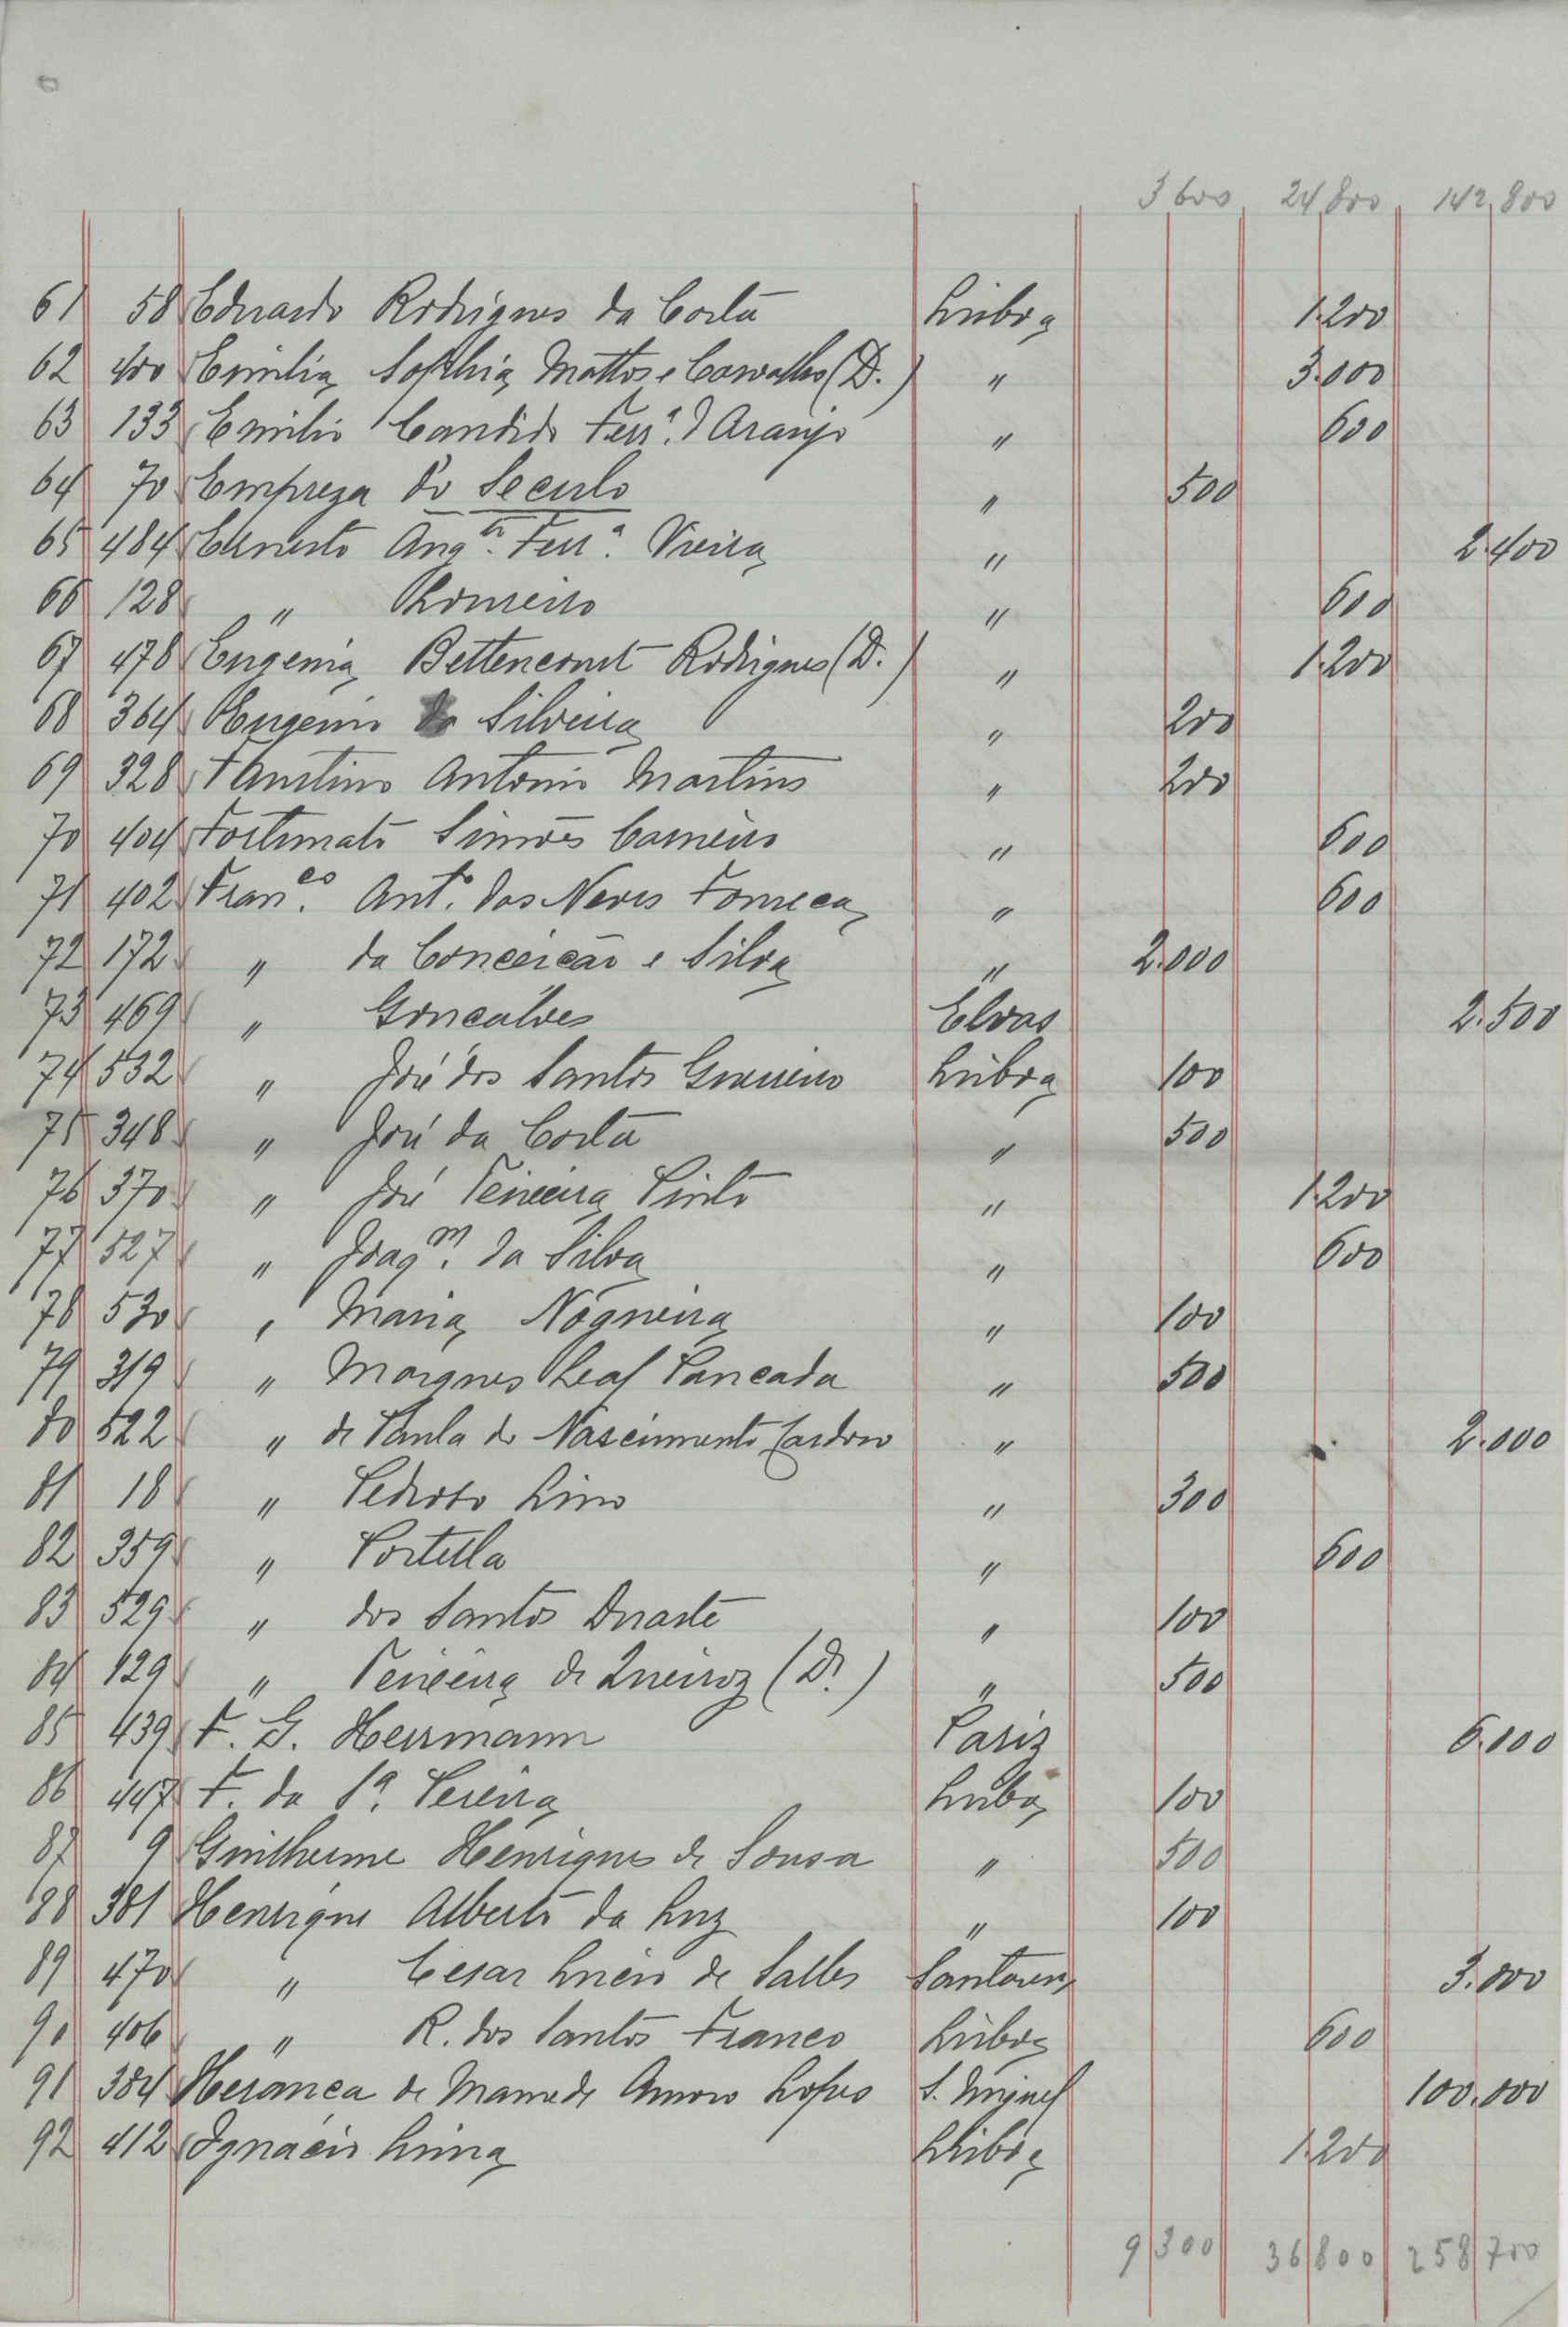 3600 24800 142,800
61 58 Eduardo Rodrigues da Costa Lisboa 1.200
62 400 Emilia Sophia Mattos e Carvalho (D.) " 3.000
63 133 Emilio Candido Ferr.ª d'Araujo " 600
64 70 Empreza d'o Seculo " 500
65 484 Ernesto Aug.to Ferr.ª Vieira " 2.400
66 128 " Loureiro " 600
67 478 Eugenia Bettencourt Rodrigues (D.) " 1.200
68 364 Eugenio da Silveira " 200
69 328 Faustino Antonio Martins " 200
70 404 Fortunato Simões Carneiro " 600
71 402 Fran.co Ant.o das Neves Fonseca " 600
72 172 " da Conceicão e Silva " 2.000
73 469 " Goncalves Elvas 2.500
74 532 " José dos Santos Guerreiro Lisboa 100
75 348 " José da Costa " 500
76 370 " José Teixeira Pinto " 1.200
77 527 " Joaq.m da Silva " 600
78 530 " Maria Nogueira " 100
79 319 " Marques Leal Pancada " 500
80 522 " de Paula do Nascimento Cardoso " 2.000
81 18 " Pedroso Lima " 300
82 359 " Portella " 600
83 529 " dos Santos Duarte " 100
84 129 " Teixeira de Queiroz (Dr.) " 500
85 439 F. G. Herrmann Pariz 6.000
86 447 F. da S.ª Pereira Lisboa 100
87 9 Guilherme Henriques de Sousa " 500
88 381 Henrique Alberto da Luz " 100
89 470 " Cesar Lucio de Salles Santarem 3.000
90 406 " R. dos Santos Franco Lisboa 600
91 384 Heranca de Mamede Amoro Lopes S. Miguel 100.000
92 412 Ignacio Lima Lisboa 1.200
9300 36800 258700